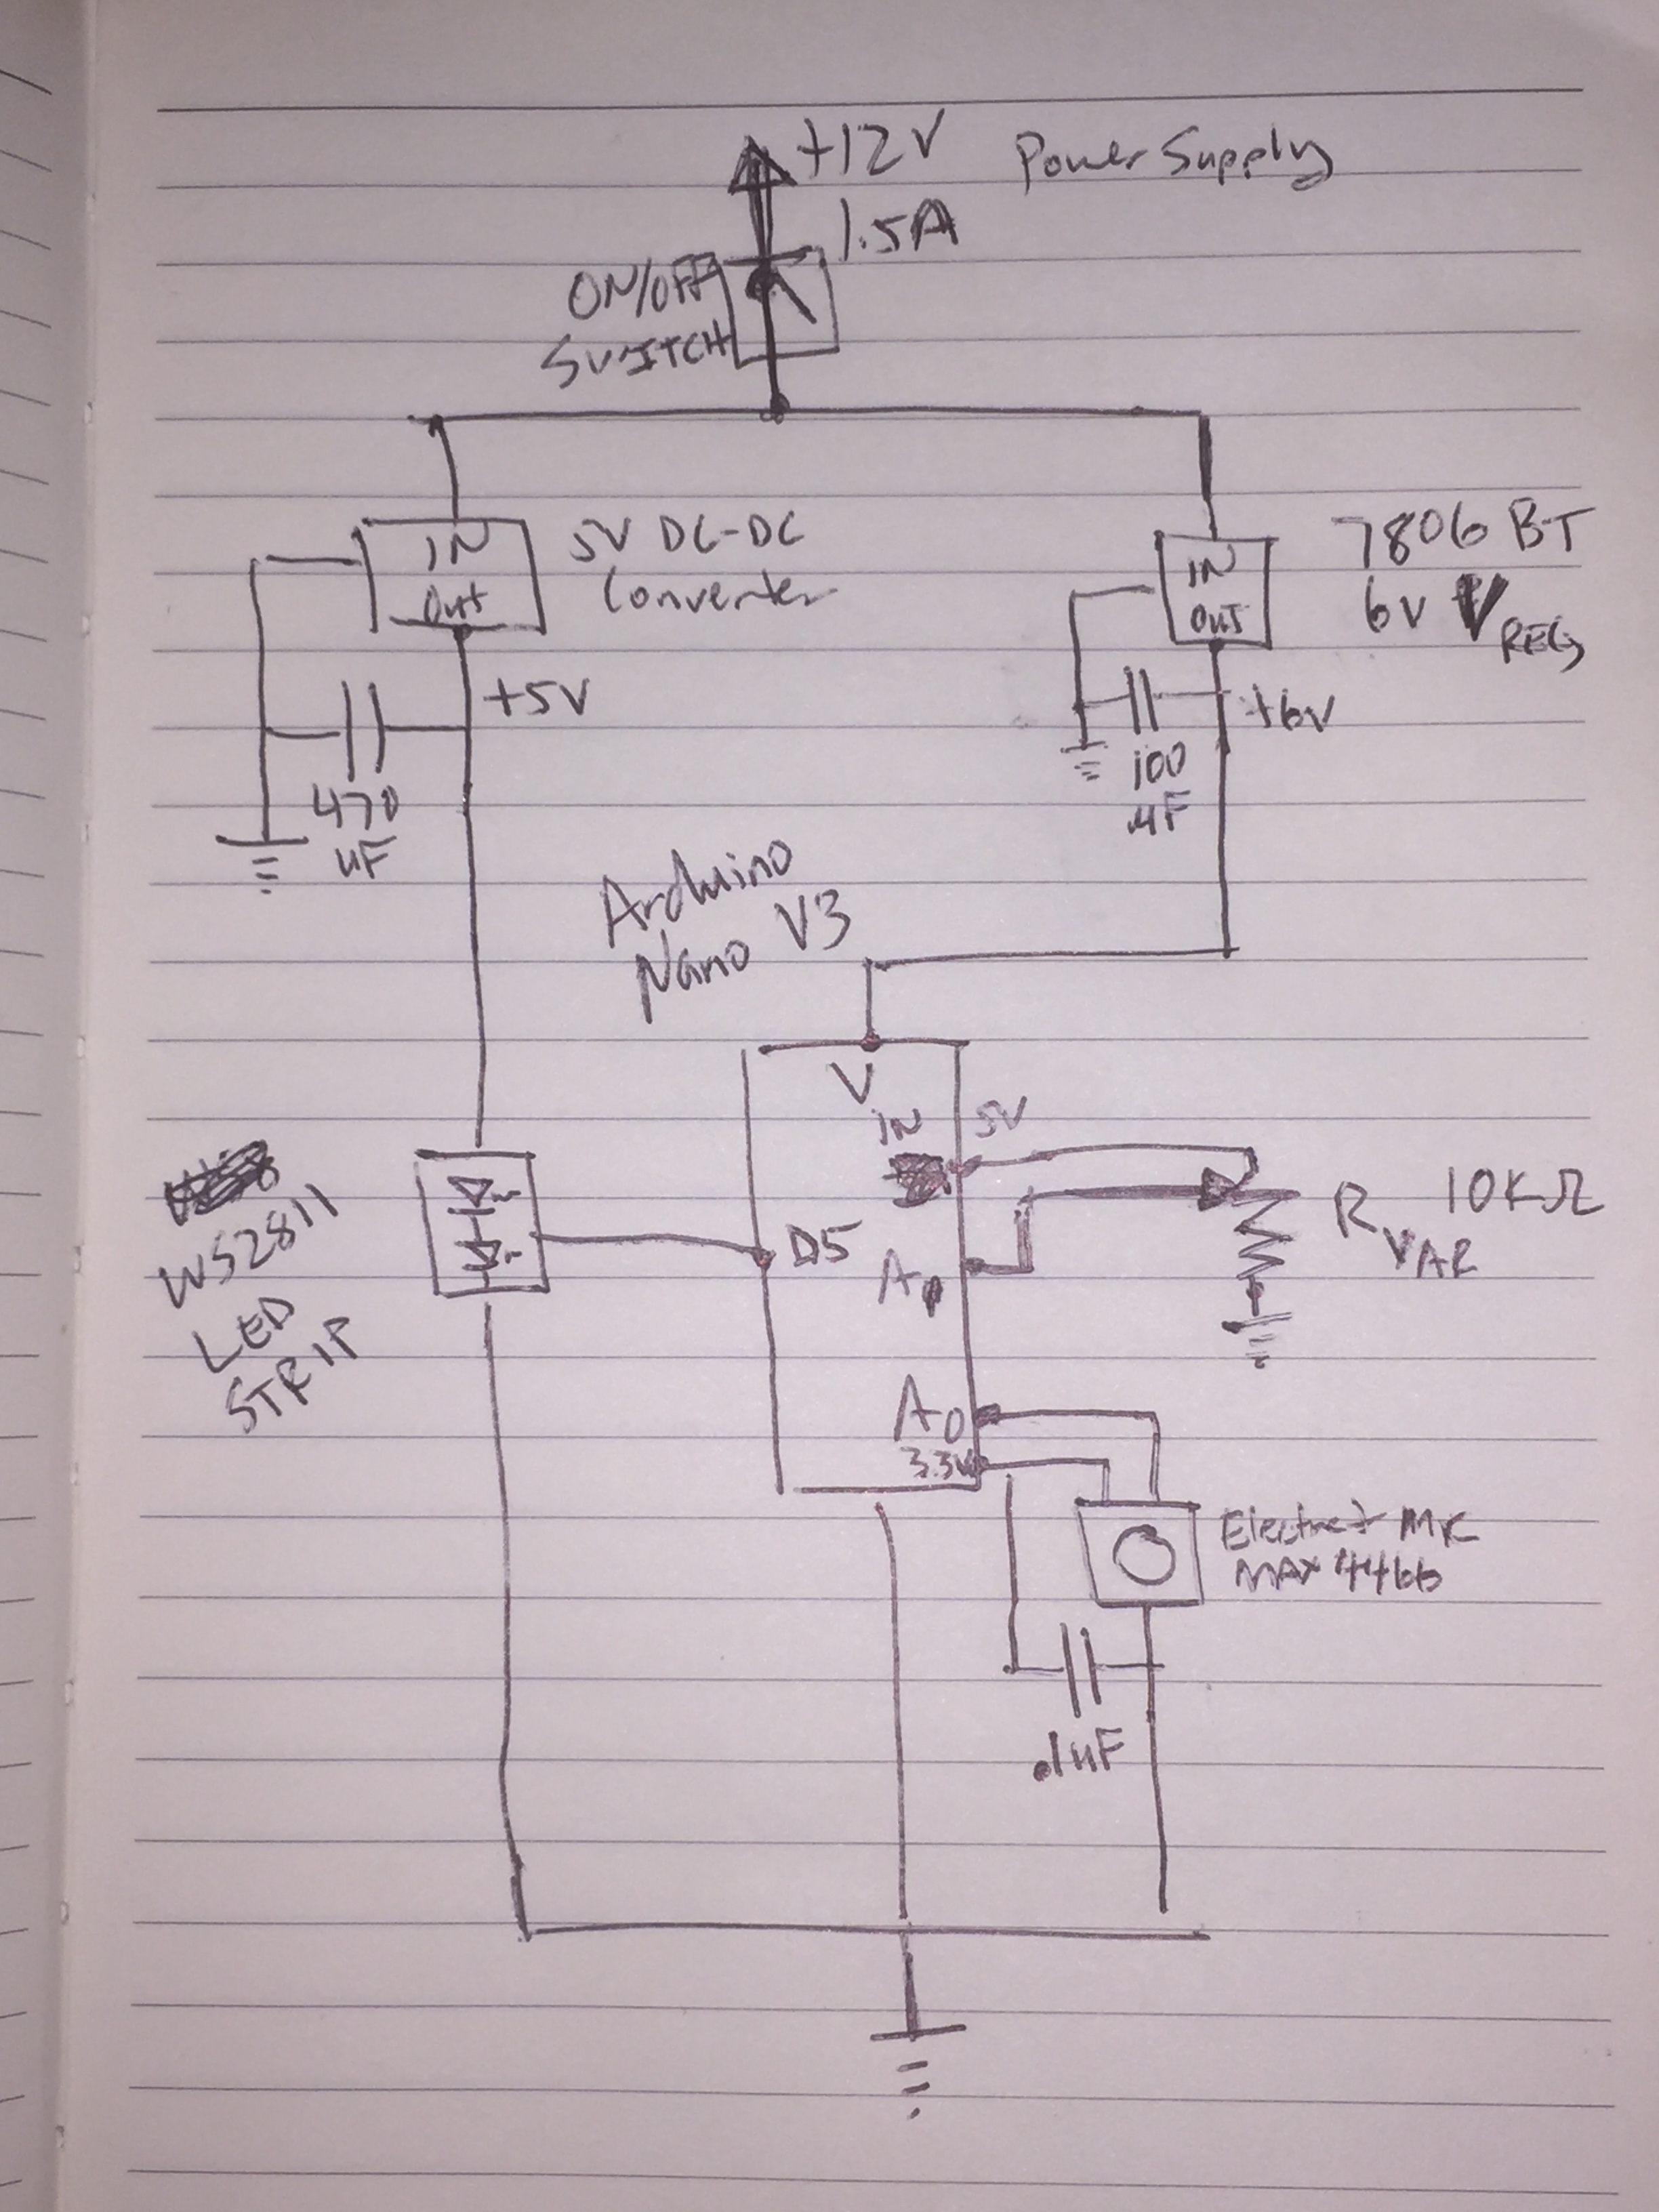 +12V Power Supply
1.5A
ON/OFF
SWITCH
IN
Out
5V DC-DC
Converter
IN
OUT
7806 BT
6V V REG
+5V
+6V
470
uF
100
uF
Arduino
Nano V3
V
IN
5V
WS2811
LED
STRIP
D5
R VAR 10KΩ
A0
3.3V
Electret MIC
MAX4466
.1uF